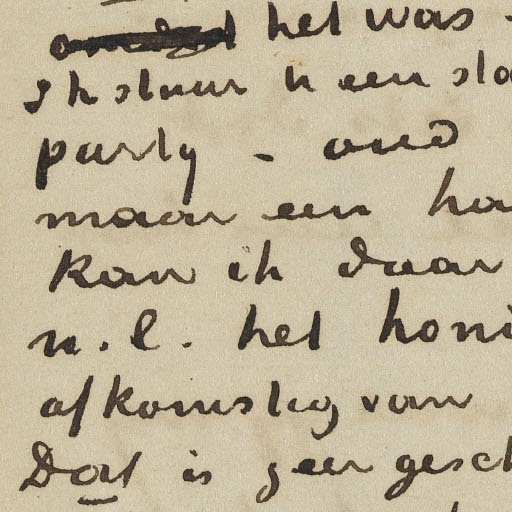 het was
Ik stuur u een sla
party - oud
maar een ha
Kan ik daar
n.l. het honi
afkomstig van
Dat is geen gesch